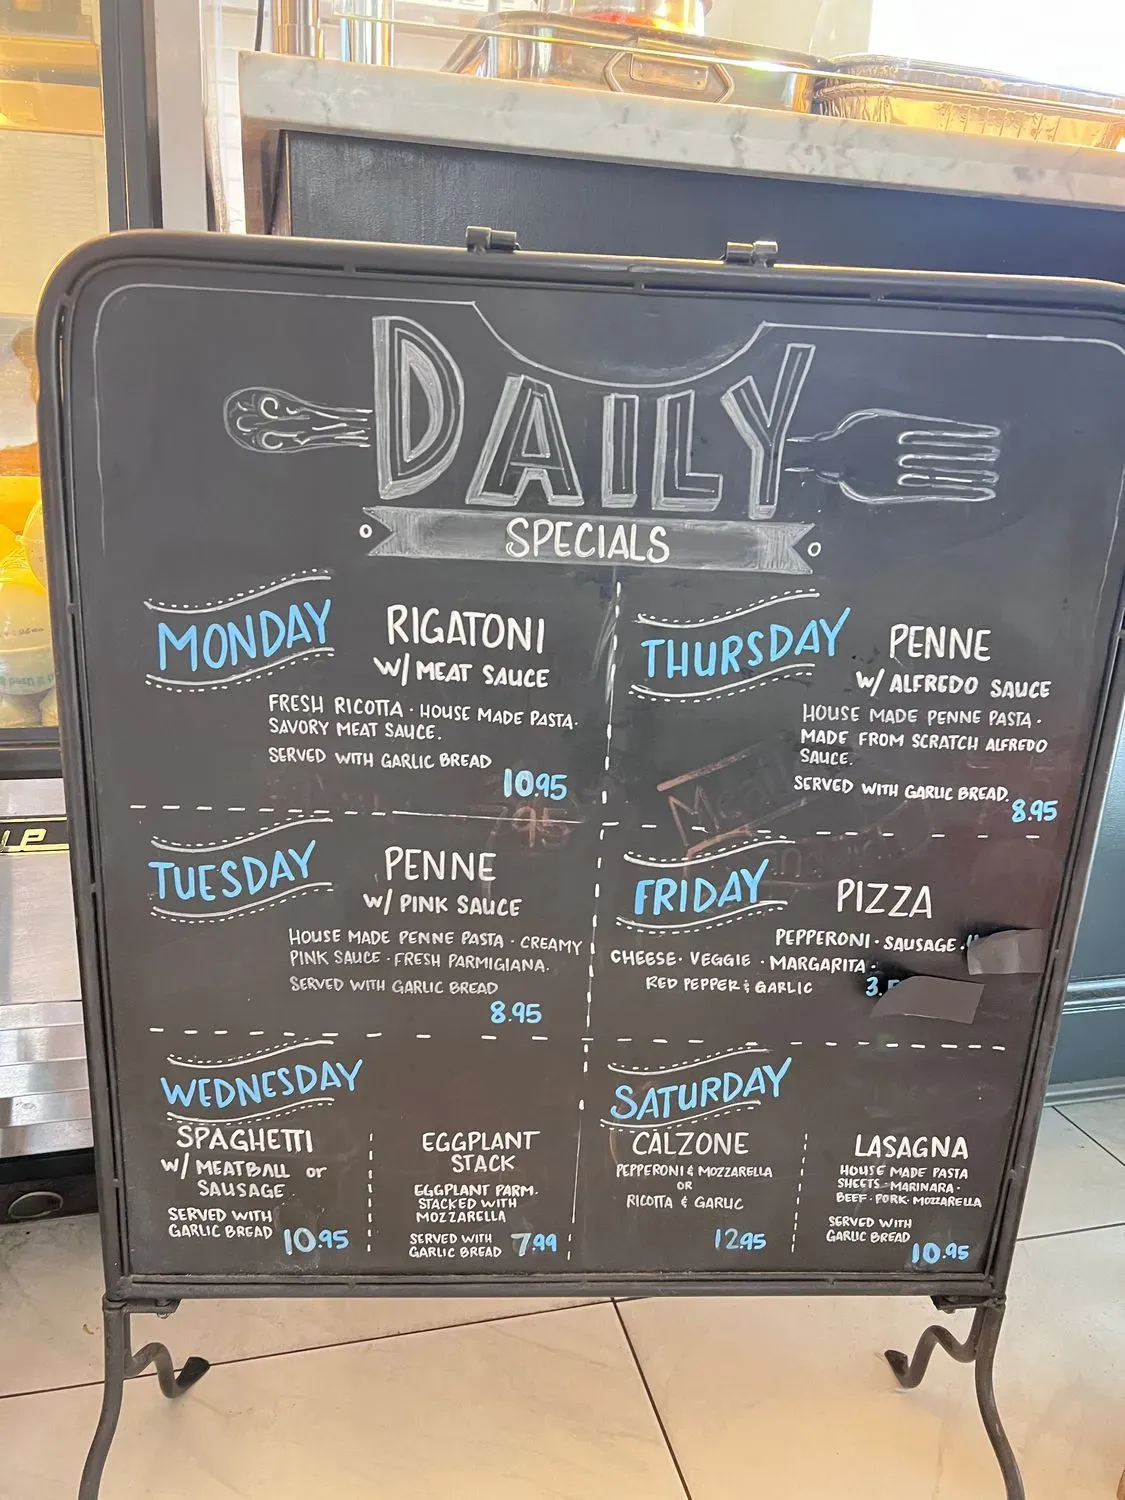 DAILY
SPECIALS
MONDAY
RIGATONI
W/ MEAT SAUCE
FRESH RICOTTA · HOUSE MADE PASTA·
SAVORY MEAT SAUCE.
SERVED WITH GARLIC BREAD
10.95
TUESDAY
PENNE
W/ PINK SAUCE
HOUSE MADE PENNE PASTA · CREAMY
PINK SAUCE · FRESH PARMIGIANA.
SERVED WITH GARLIC BREAD
8.95
WEDNESDAY
SPAGHETTI
W/ MEATBALL or
SAUSAGE
SERVED WITH
GARLIC BREAD
10.95
EGGPLANT
STACK
EGGPLANT PARM.
STACKED WITH
MOZZARELLA
SERVED WITH
GARLIC BREAD
7.99
THURSDAY
PENNE
W/ ALFREDO SAUCE
HOUSE MADE PENNE PASTA ·
MADE FROM SCRATCH ALFREDO
SAUCE.
SERVED WITH GARLIC BREAD.
8.95
FRIDAY
PIZZA
PEPPERONI · SAUSAGE ·
CHEESE · VEGGIE · MARGARITA ·
RED PEPPER & GARLIC
3.
SATURDAY
CALZONE
PEPPERONI & MOZZARELLA
OR
RICOTTA & GARLIC
12.95
LASAGNA
HOUSE MADE PASTA
SHEETS · MARINARA ·
BEEF · PORK · MOZZARELLA
SERVED WITH
GARLIC BREAD
10.95